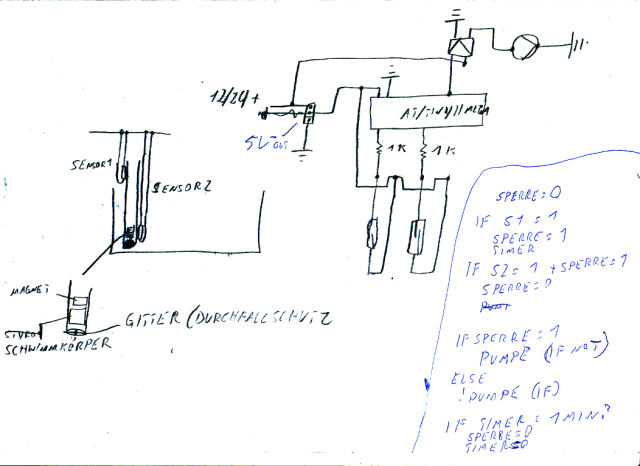 12/24+
5V OUT
AT/TINY//MEGA
1K
1K
SENSOR1
SENSOR2
MAGNET
STYRO
SCHWIMMKÖRPER
GITTER/DURCHFALLSCHUTZ
SPERRE=0
IF S1=1
SPERRE=1
TIMER
IF S2=1 + SPERRE=1
SPERRE=0
IF SPERRE=1
PUMPE (IF NOT)
ELSE
!PUMPE (IF)
IF TIMER=1MIN?
SPERRE=0
TIMER=0